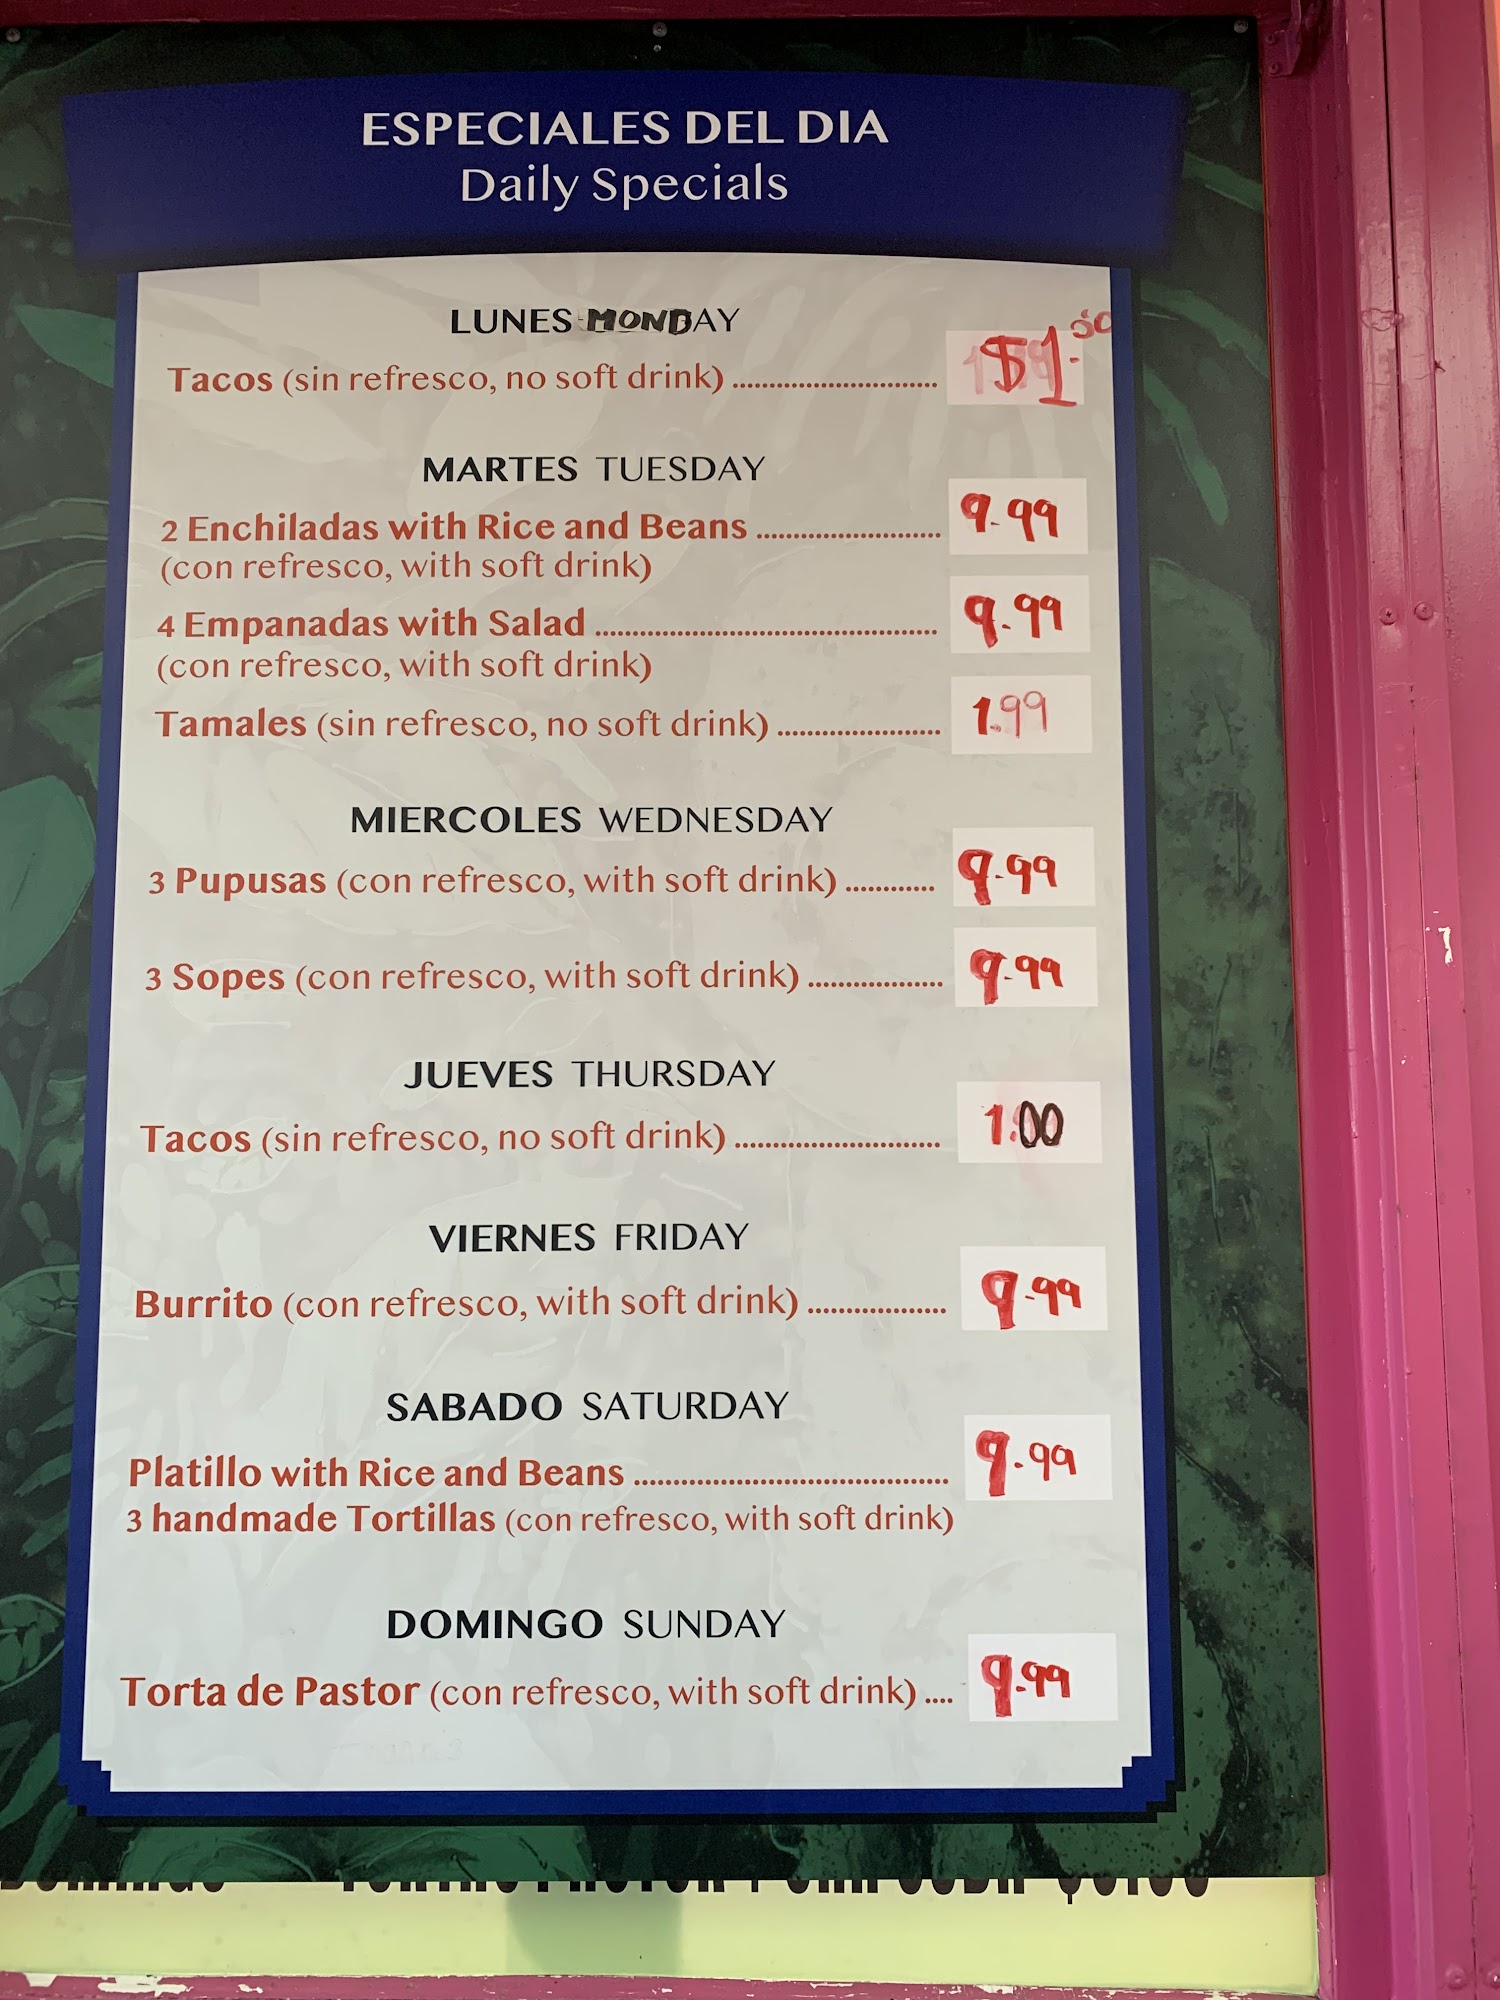 ESPECIALES DEL DIA
Daily Specials
LUNES MONDAY
Tacos (sin refresco, no soft drink) ........................... $1.50
MARTES TUESDAY
2 Enchiladas with Rice and Beans ........................ 9.99
(con refresco, with soft drink)
4 Empanadas with Salad ............................................. 9.99
(con refresco, with soft drink)
Tamales (sin refresco, no soft drink) ..................... 1.99
MIERCOLES WEDNESDAY
3 Pupusas (con refresco, with soft drink) ............ 9.99
3 Sopes (con refresco, with soft drink) .................. 9.99
JUEVES THURSDAY
Tacos (sin refresco, no soft drink) ........................... 1.00
VIERNES FRIDAY
Burrito (con refresco, with soft drink) .................. 9.99
SABADO SATURDAY
Platillo with Rice and Beans ......................................... 9.99
3 handmade Tortillas (con refresco, with soft drink)
DOMINGO SUNDAY
Torta de Pastor (con refresco, with soft drink) .... 9.99